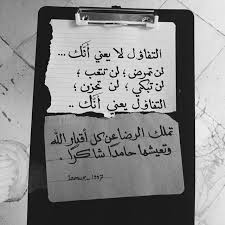 التفاؤل لا يعني أنَّك ...
لن تمرض ؛ لن تتعب ؛
لن تبكي ؛ لن تحزن ؛
التفاؤل يعني أنَّك ..
تملك الرضا عن كل أقدار الله
وتعيشها حامداً شاكراً .